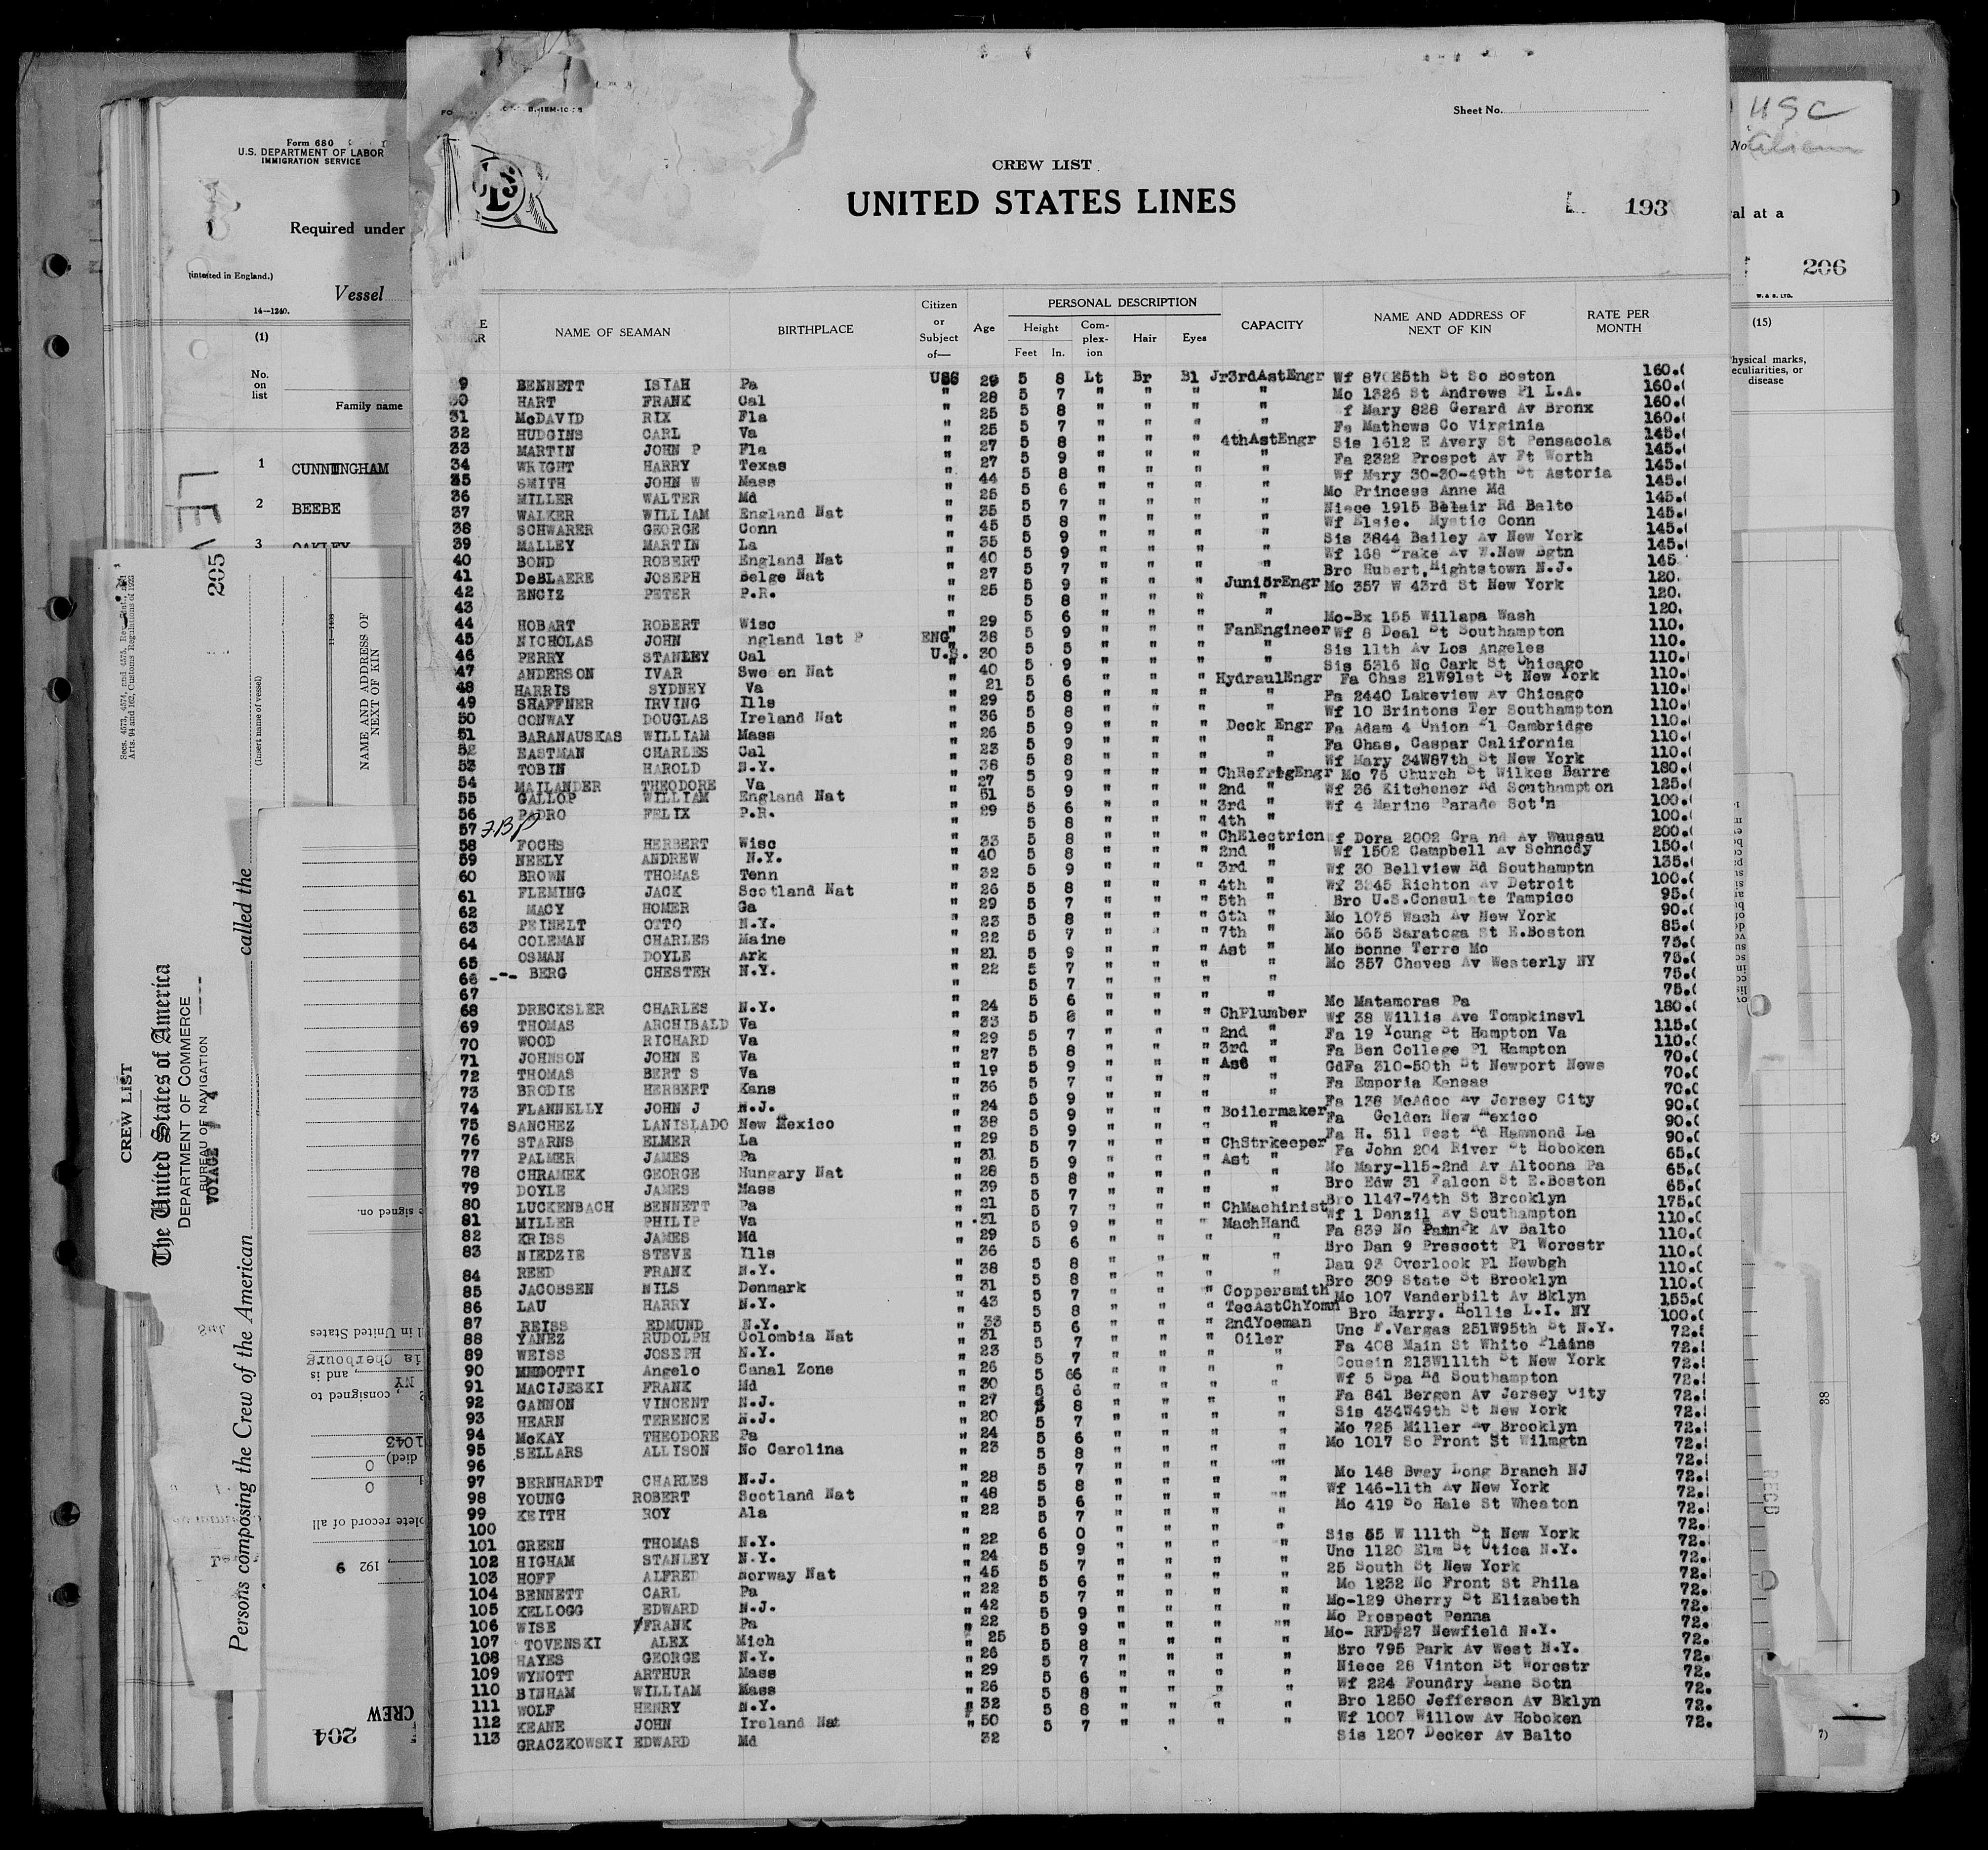 Sheet No.
CREW LIST
UNITED STATES LINES
193
NAME OF SEAMAN BIRTHPLACE Citizen or Subject of— Age PERSONAL DESCRIPTION Height Feet In. Complexion Hair Eyes CAPACITY NAME AND ADDRESS OF NEXT OF KIN RATE PER MONTH
9 BENNETT ISIAH Pa 29 5 8 Lt Br Bl Jr3rdAstEngr Wf 870E5th St So Boston 160.
30 HART FRANK Cal " 28 5 7 " " " " Mo 1326 St Andrews Pl L.A. 160.
31 McDAVID RIX Fla " 25 5 8 " " " " Wf Mary 828 Gerard Av Bronx 160.
32 HUDGINS CARL Va " 25 5 7 " " " " Fa Mathews Co Virginia 160.
33 MARTIN JOHN P Fla " 27 5 8 " " " 4thAstEngr Sis 1612 E Avery St Pensacola 145.
34 WRIGHT HARRY Texas " 27 5 9 " " " " Fa 2322 Prospct Av Ft Worth 145.
35 SMITH JOHN W Mass " 44 5 8 " " " " Wf Mary 30-30-49th St Astoria 145.
36 MILLER WALTER Md " 25 5 6 " " " " Mo Princess Anne Md 145.
37 WALKER WILLIAM England Nat " 35 5 7 " " " " Niece 1915 Belair Rd Balto 145.
38 SCHWARER GEORGE Conn " 45 5 8 " " " " Wf Elsie. Mystic Conn 145.
39 MALLEY MARTIN La " 35 5 9 " " " " Sis 3844 Bailey Av New York 145.
40 BOND ROBERT England Nat " 40 5 9 " " " " Wf 168 Drake Av W.New Bgtn 145.
41 DeBLAERE JOSEPH Belge Nat " 27 5 7 " " " " Bro Hubert, Hightstown N.J. 145
42 ENCIZ PETER P.R. " 25 5 9 " " " JuniorEngr Mo 357 W 43rd St New York 120.
43 " 5 8 " " " " 120.
44 HOBART ROBERT Wisc " 29 5 6 " " " " Mo-Bx 155 Willapa Wash 120.
45 NICHOLAS JOHN ngland 1st P ENG 38 5 9 " " " FanEngineer Wf 8 Deal St Southampton 110.
46 PERRY STANLEY Cal U.S. 30 5 5 " " " " Sis 11th Av Los Angeles 110.
47 ANDERSON IVAR Sweden Nat " 40 5 9 " " " " Sis 5316 No Cark St Chicago 110.
48 HARRIS SYDNEY Va " 21 5 6 " " " HydraulEngr Fa Chas 21W91st St New York 110.
49 SHAFFNER IRVING Ills " 29 5 8 " " " " Fa 2440 Lakeview Av Chicago 110.
50 CONWAY DOUGLAS Ireland Nat " 36 5 8 " " " " Wf 10 Brintons Ter Southampton 110.
51 BARANAUSKAS WILLIAM Mass " 26 5 9 " " " Deck Engr Fa Adam 4 Union Pl Cambridge 110.
52 EASTMAN CHARLES Cal " 23 5 9 " " " " Fa Chas, Caspar California 110.
53 TOBIN HAROLD N.Y. " 38 5 8 " " " " Wf Mary 34W87th St New York 110.
54 MAILANDER THEODORE Va " 27 5 9 " " " ChRefrigEngr Mo 76 Church St Wilkes Barre 180.
55 GALLOP WILLIAM England Nat " 51 5 9 " " " 2nd " Wf 36 Kitchener Rd Southampton 125.
56 PADRO FELIX P.R. " 29 5 6 " " " 3rd " Wf 4 Marine Parade Sot'n 100.
57 " 5 8 " " " 4th " 100.
58 FOCHS HERBERT Wisc " 33 5 8 " " " ChElectricn Wf Dora 2002 Grand Av Wausau 200.
59 NEELY ANDREW N.Y. " 40 5 8 " " " 2nd " Wf 1502 Campbell Av Schnedy 150.
60 BROWN THOMAS Tenn " 32 5 9 " " " 3rd " Wf 30 Bellview Rd Southamptn 135.
61 FLEMING JACK Scotland Nat " 26 5 8 " " " 4th " Wf 3345 Richton Av Detroit 100.
62 MACY HOMER Ga " 29 5 7 " " " 5th " Bro U.S.Consulate Tampico 95.
63 PEINELT OTTO N.Y. " 23 5 8 " " " 6th " Mo 1075 Wash Av New York 90.
64 COLEMAN CHARLES Maine " 22 5 7 " " " 7th " Mo 665 Saratoga St E.Boston 85.
65 OSMAN DOYLE Ark " 21 5 9 " " " Ast " Mo Bonne Terre Mo 75.
66 --- BERG CHESTER N.Y. " 22 5 7 " " " " Mo 357 Chaves Av Westerly NY 75.
67 " 5 7 " " " " 75.
68 DRECKSLER CHARLES N.Y. " 24 5 6 " " " " Mo Matamoras Pa 75.
69 THOMAS ARCHIBALD Va " 33 5 8 " " " ChPlumber Wf 38 Willis Ave Tompkinsvl 180.
70 WOOD RICHARD Va " 29 5 7 " " " 2nd " Fa 19 Young St Hampton Va 115.
71 JOHNSON JOHN E Va " 27 5 8 " " " 3rd " Fa Ben College Pl Hampton 110.
72 THOMAS BERT S Va " 19 5 9 " " " Ast " GdFa 310-50th St Newport News 70.
73 BRODIE HERBERT Kans " 36 5 7 " " " " Fa Emporia Kansas 70.
74 FLANNELLY JOHN J N.J. " 24 5 9 " " " " Fa 138 McAdoo Av Jersey City 70.
75 SANCHEZ LANISLADO New Mexico " 38 5 9 " " " Boilermaker Fa Golden New Mexico 90.
76 STARNS ELMER La " 29 5 9 " " " " Fa H. 511 West Rd Hammond La 90.
77 PALMER JAMES Pa " 31 5 7 " " " ChStrkeeper Fa John 204 River St Hoboken 90.
78 CHRAMEK GEORGE Hungary Nat " 28 5 9 " " " Ast " Mo Mary-115-2nd Av Altoona Pa 65.
79 DOYLE JAMES Mass " 39 5 8 " " " " Bro Edw 31 Falcon St E.Boston 65.
80 LUCKENBACH BENNETT Pa " 21 5 7 " " " " Bro 1147-74th St Brooklyn 65.
81 MILLER PHILIP Va " 31 5 7 " " " ChMachinist Wf 1 Denzil Av Southampton 175.
82 KRISS JAMES Md " 29 5 9 " " " MachHand Fa 839 No Av Balto 110.
83 NIEDZIE STEVE Ills " 36 5 6 " " " " Bro Dan 9 Prescott Pl Worcstr 110.
84 REED FRANK N.Y. " 38 5 8 " " " " Dau 93 Overlook Pl Newbgh 110.
85 JACOBSEN NILS Denmark " 31 5 8 " " " " Bro 309 State St Brooklyn 110.
86 LAU HARRY N.Y. " 43 5 7 " " " Coppersmith Mo 107 Vanderbilt Av Bklyn 110.
87 REISS EDMUND N.Y. " 33 5 8 " " " TecAstChYomn Bro Harry. Hollis L.I. NY 155.
88 YANEZ RUDOLPH Colombia Nat " 31 5 6 " " " 2ndYoeman Unc F.Vargas 251W95th St N.Y. 100.
89 WEISS JOSEPH N.Y. " 23 5 7 " " " Oiler Fa 408 Main St White Plains 72.
90 Angelo Canal Zone " 26 5 7 " " " " Cousin 213W111th St New York 72.
91 MACIJESKI FRANK Md " 30 5 66 " " " " Wf 5 Spa Rd Southampton 72.
92 GANNON VINCENT N.J. " 27 5 6 " " " " Fa 841 Bergen Av Jersey City 72.
93 HEARN TERENCE N.J. " 20 5 8 " " " " Sis 434W49th St New York 72.
94 McKAY THEODORE Pa " 24 5 7 " " " " Mo 725 Miller Av Brooklyn 72.
95 SELLARS ALLISON No Carolina " 23 5 6 " " " " Mo 1017 So Front St Wilmgtn 72.
96 " 5 8 " " " " 72.
97 BERNHARDT CHARLES N.J. " 28 5 7 " " " " Mo 148 Bway Long Branch NJ 72.
98 YOUNG ROBERT Scotland Nat " 48 5 8 " " " " Wf 146-11th Av New York 72.
99 KEITH ROY Ala " 22 5 6 " " " " Mo 419 So Hale St Wheaton 72.
100 " 5 7 " " " " 72.
101 GREEN THOMAS N.Y. " 22 6 0 " " " " Sis 55 W 111th St New York 72.
102 HIGHAM STANLEY N.Y. " 24 5 9 " " " " Unc 1120 Elm St Utica N.Y. 72.
103 HOFF ALFRED Norway Nat " 45 5 7 " " " " 25 South St New York 72.
104 BENNETT CARL Pa " 22 5 6 " " " " Mo 1232 No Front St Phila 72.
105 KELLOGG EDWARD N.J. " 42 5 7 " " " " Mo-129 Cherry St Elizabeth 72.
106 WISE FRANK Pa " 22 5 9 " " " " Mo Prospect Penna 72.
107 TOVENSKI ALEX Mich " 25 5 9 " " " " Mo- RFD#27 Newfield N.Y. 72.
108 HAYES GEORGE N.Y. " 26 5 8 " " " " Bro 795 Park Av West N.Y. 72.
109 WYNOTT ARTHUR Mass " 29 5 7 " " " " Niece 28 Vinton St Worcstr 72.
110 BINHAM WILLIAM Mass " 26 5 6 " " " " Wf 224 Foundry Lane Sotn 72.
111 WOLF HENRY N.Y. " 32 5 8 " " " " Bro 1250 Jefferson Av Bklyn 72.
112 KEANE JOHN Ireland Nat " 50 5 8 " " " " Wf 1007 Willow Av Hoboken 72.
113 GRACZKOWSKI EDWARD Md 32 5 7 " " " " Sis 1207 Decker Av Balto 72.
Form 680
U.S. DEPARTMENT OF LABOR
IMMIGRATION SERVICE
Required under
Vessel
14—1240.
(1)
No. on list
Family name
1 CUNNINGHAM
2 BEEBE
3 OAKLEY
205
(Insert name of vessel)
NAME AND ADDRESS OF
NEXT OF KIN
CREW LIST
The United States of America
DEPARTMENT OF COMMERCE
BUREAU OF NAVIGATION
VOYAGE
Persons composing the Crew of the American called the
signed on.
in United States
Cherbourg
, and is
NY
, consigned to
1043
died)
0
0
plete record of all
, 192 9
CREW
204
HSC
No
val at a
206
W. & S. LTD.
(15)
hysical marks,
eculiarities, or
disease
88
RECD
7)